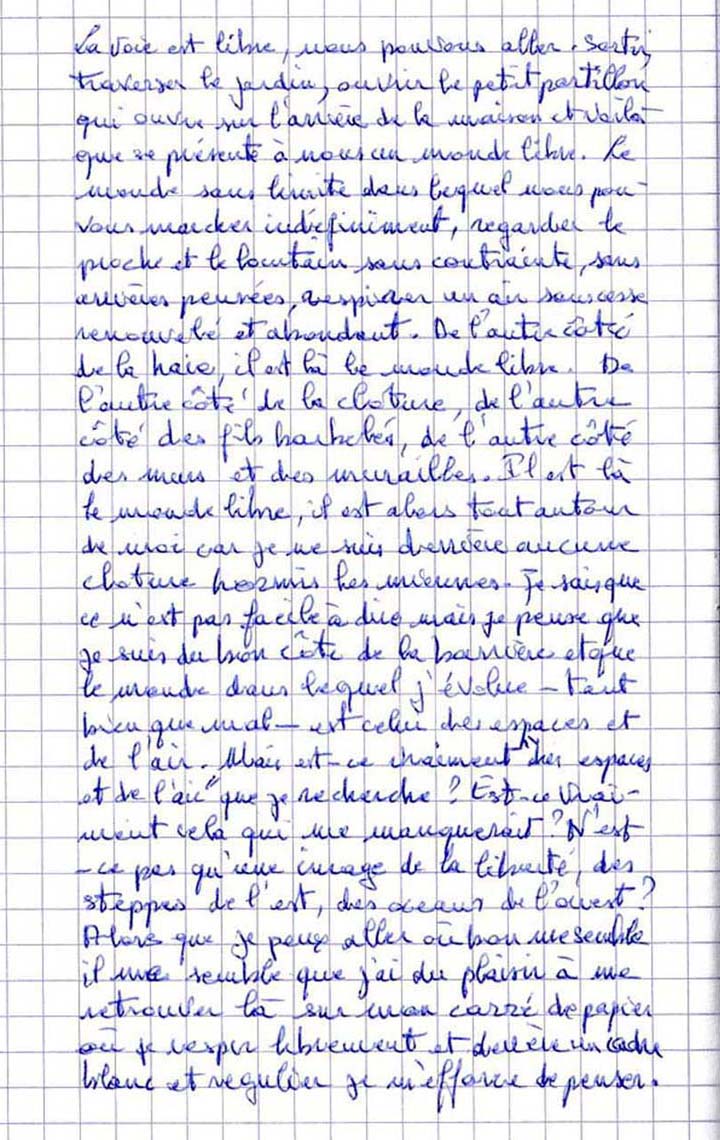 La voie est libre, nous pouvons aller. Sortir,
traverser le jardin, ouvrir le petit portillon
qui ouvre sur l'arrière de la maison et voilà
que se présente à nous un monde libre. Le
monde sans limite dans lequel nous pou-
vons marcher indéfiniment, regarder le
proche et le lointain sans contrainte, sans
arrières pensées, respirer un air sans cesse
renouvelé et abondant. De l'autre côté
de la haie, il est là le monde libre. De
l'autre côté de la cloture, de l'autre
côté des fils barbelés, de l'autre côté
des murs et des murailles. Il est là
le monde libre, il est alors tout autour
de moi car je ne suis derrière aucune
cloture hormis les miennes. Je sais que
ce n'est pas facile à dire mais je pense que
je suis du bon côté de la barrière et que
le monde dans lequel j'évolue - tant
bien que mal - est celui des espaces et
de l'air. Mais est-ce vraiment "des espaces
et de l'air" que je recherche ? Est-ce vrai-
ment cela qui me manquerait ? N'est
-ce pas qu'une image de la liberté, des
steppes de l'est, des oceans de l'ouest ?
Alors que je peux aller où bon me semble
il me semble que j'ai du plaisir à me
retrouver là sur mon carré de papier
où je respire librement et derrière un cadre
blanc et regulier je m'efforce de penser.